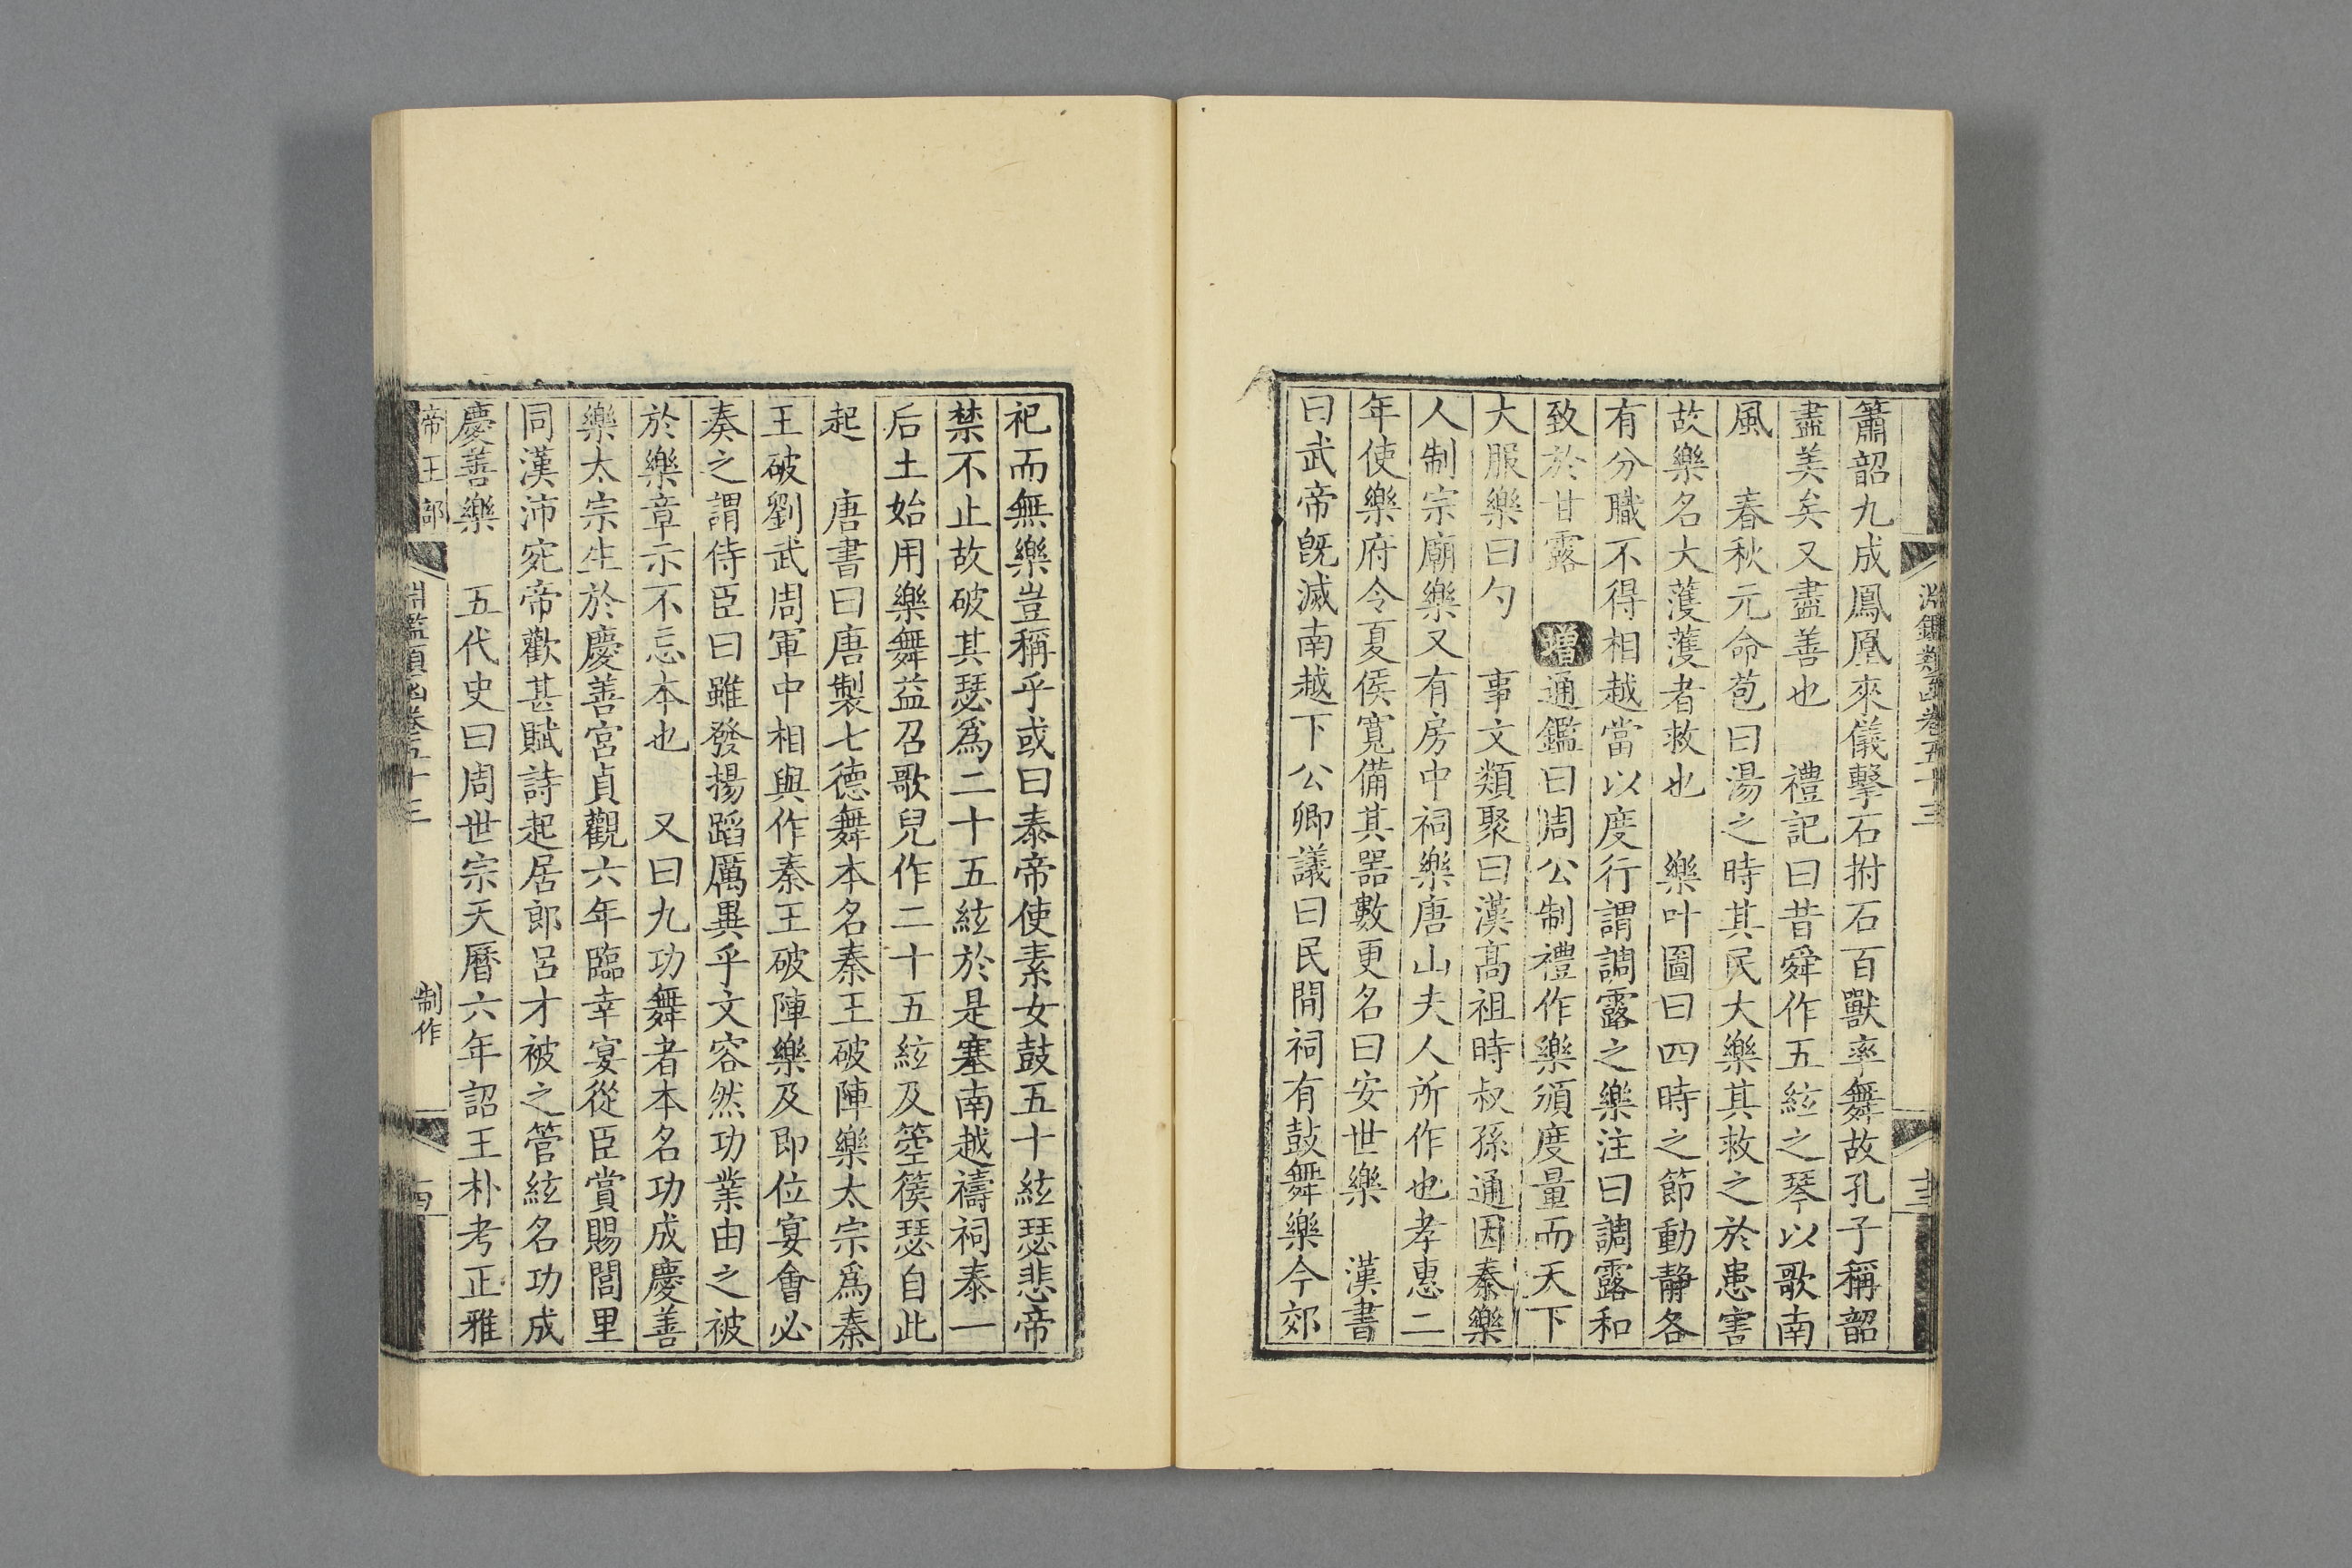 淵鑑類函卷五十三
十三
簫韶九成鳳凰來儀擊石拊石百獸率舞故孔子稱韶
盡美矣又盡善也　禮記曰昔舜作五絃之琴以歌南
風　春秋元命苞曰湯之時其民大樂其救之於患害
故樂名大蒦蒦者救也　樂叶圖曰四時之節動靜各
有分職不得相越當以度行謂調露之樂注曰調露和
致於甘露　增通鑑曰周公制禮作樂頒度量而天下
大服樂曰勺　事文類聚曰漢高祖時叔孫通因秦樂
人制宗廟樂又有房中祠樂唐山夫人所作也孝惠二
年使樂府令夏侯寬備其器數更名曰安世樂　漢書
曰武帝旣滅南越下公卿議曰民間祠有鼓舞樂今郊
祀而無樂豈稱乎或曰泰帝使素女鼓五十絃瑟悲帝
禁不止故破其瑟爲二十五絃於是塞南越禱祠泰一
后土始用樂舞益召歌兒作二十五絃及箜篌瑟自此
起　唐書曰唐製七德舞本名秦王破陣樂太宗爲秦
王破劉武周軍中相與作秦王破陣樂及即位宴會必
奏之謂侍臣曰雖發揚蹈厲異乎文容然功業由之被
於樂章示不忘本也　又曰九功舞者本名功成慶善
樂太宗生於慶善宮貞觀六年臨幸宴從臣賞賜閭里
同漢沛宛帝歡甚賦詩起居郎呂才被之管絃名功成
慶善樂　五代史曰周世宗天曆六年詔王朴考正雅
帝王部
淵鑑類函卷五十三
制作